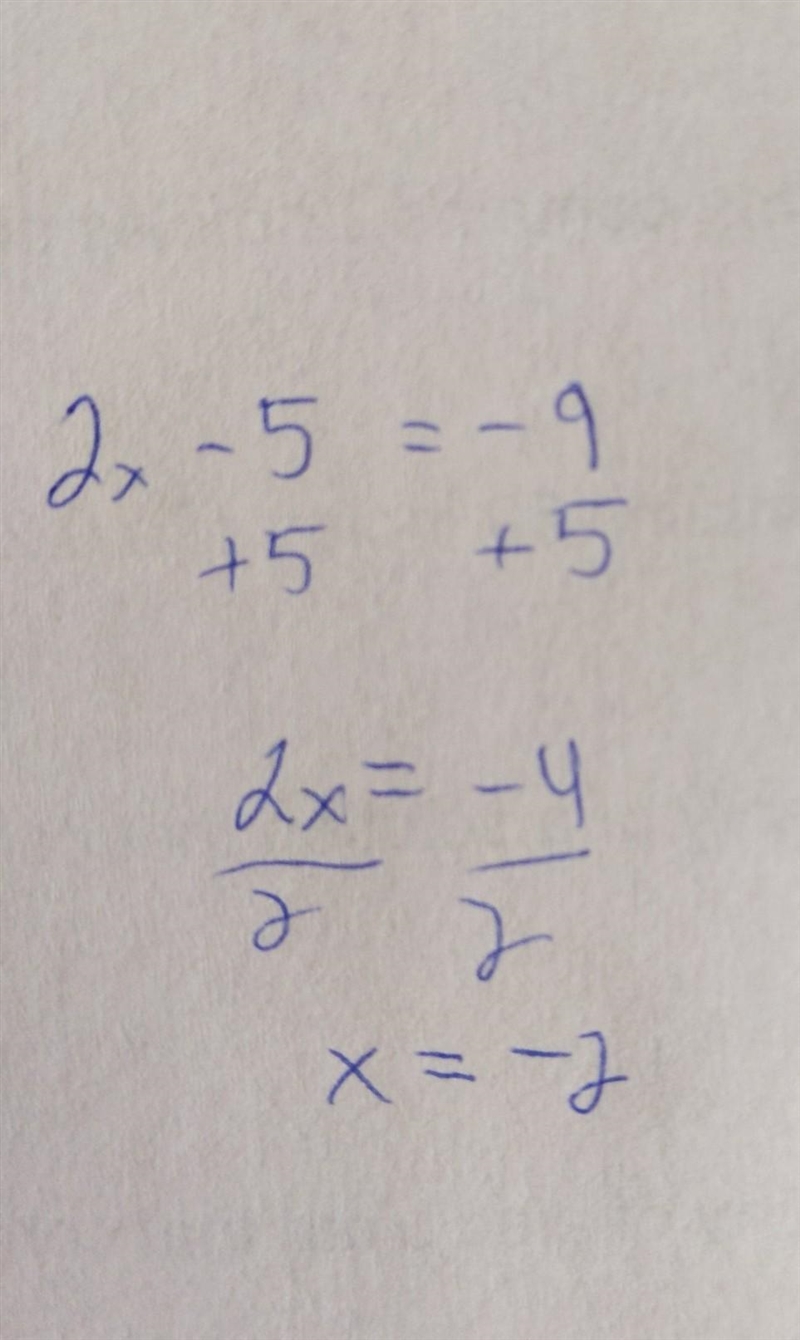 2x - 5 = -9
+5 +5
2x = -4
2 2
x = -2